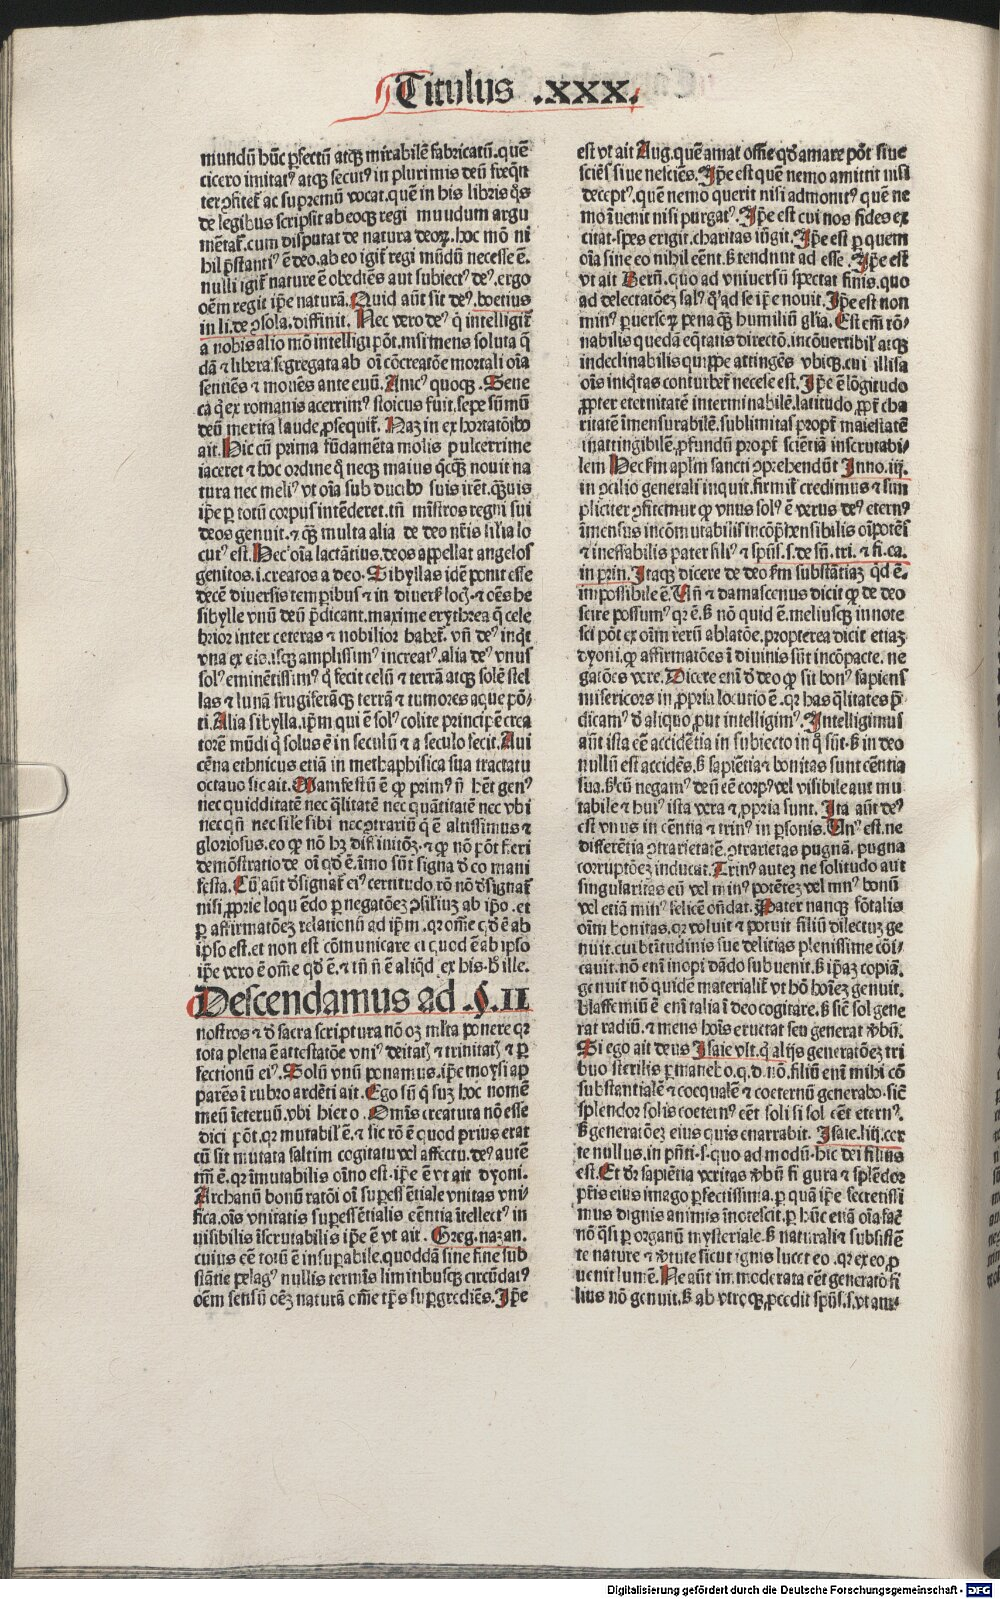 Titulus .XXX.
mundū hūc ꝑfectū atqꝫ mirabilē fabricatū. quē
cicero imitatꝰ atqꝫ secutꝰ in plurimis deū freqn̄
ter ꝯfitet᷑ ac supremū vocat. quē in his libris q̄s
de legibus scripsit ab eoqꝫ regi muudum argu
mētat᷑. cum disputat de natura deoꝝ. hoc mō ni
hil p̄stantiꝰ ē deo. ab eo igit᷑ regi mūdū necesse ē.
nulli igit᷑ nature ē obediēs aut subiectꝰ deꝰ. ergo
oēm regit ip̄e naturā. Quid aūt sit deꝰ. boetius
in li. de ꝯsola. diffinit. Nec vero deꝰ q̇ intelligit᷑
a nobis alio mō intelligi pōt. nisi mens soluta q̄
dā ⁊ libera segregata ab oī cōcreatōe mortali oīa
sentiēs ⁊ mouēs ante euū. Anicꝰ quoqꝫ. Sene
ca q̇ ex romanis acerrimꝰ stoicus fuit. sepe sūmū
deū merita laude ꝓsequit᷑. Naꝫ in exhortatōibꝰ
ait. Hic cū prima fūdamēta molis pulcerrime
iaceret ⁊ hoc ordine q̄ neqꝫ maius q̄cqꝫ nouit na
tura nec meliꝰ vt oīa sub ducibꝰ suis irēt. qꝫuis
ip̄e ꝑ totū corpus intēderet. tn̄ mīstros regni sui
deos genuit. ⁊ qꝫ multa alia de deo nr̄is silia lo
cutꝰ est. Hec oīa lactātius. deos appellat angelos
genitos. i. creatos a deo. Sibyllas idē ponit esse
decē diuersis tempibꝰ ⁊ in diuers᷑ locꝭ. ⁊ oēs he
sibylle vnū deū p̄dicant. maxime erythrea q̄ cele
brior inter ceteras ⁊ nobilior habet᷑. vn̄ deꝰ inq̇t
vna ex eis. isqꝫ amplissimꝰ increatꝰ. alia deꝰ vnus
solꝰ eminētissimꝰ q̇ fecit celū ⁊ terrā atqꝫ solē stel
las ⁊ lunā frugiferāqꝫ terrā ⁊ tumores aque pō-
ti. Alia sibylla. ip̄m qui ē solꝰ colite principē crea
torē mūdi q̇ solus ē in seculū ⁊ a seculo fecit. Aui
cēna ethnicus etiā in methaphisica sua tractatu
octauo sic ait. Manifestū ē ꝙ primꝰ n̄ hēt genꝰ
nec quidditatē nec q̄litatē nec quātitatē nec vbi
nec qn̄ nec sile sibi nec ꝯtrariū q̇ ē altissimus ⁊
gloriosus. eo ꝙ nō hꝫ diffinitōꝫ. ⁊ ꝙ nō pōt fieri
demōstratio de oī qd̓ ē. īmo sūt signa d̓ eo mani
festa. Cū aūt d̓signat᷑ eiꝰ certitudo. rō nō d̓signat᷑
nisi ꝓprie loquēdo ꝑ negatōes ꝯsilius ab ip̄o. et
ꝑ affirmatōes relationū ad ip̄m. qꝛ om̄e qd̓ ē ab
ipso est. et non est cōmunicare ei quod ē ab ipso
ip̄e vero ē om̄e qd̓ ē. ⁊ tn̄ n̄ ē aliqd̓ ex his. h̓ ille.
Descendamus ad .§. II
nostros ⁊ d̓ sacra scriptura nō oꝫ ml̓ta ponere qꝛ
tota plena ē attestatōe vniꝰ deitatꝭ ⁊ trinitatꝭ ⁊ ꝑ
fectionū eiꝰ. Solū vnū ponamus. ip̄e moysi ap
parēs ī rubro ardēti ait. Ego sū q̇ suꝫ hoc nomē
meū ī eternū. vbi hiero. Om̄is creatura nō esse
dici pōt. qꝛ mutabil̓ ē. ⁊ sic rō ē quod prius erat
cū sit mutata saltim cogitatu vel affectu. deꝰ autē
tm̄ ē. qꝛ īmutabilis oīno est. ip̄e ē vt ait dyoni.
Archanū bonū ratōi oī supessētiale vnitas vni-
fica. oīs vnitatis supessētialis eēntia ītellectꝰ in
visibilis īscrutabilis ip̄e ē vt ait. Greg. nazan.
cuius eē totū ē insupabile. quoddā sine fine sub
stātie pelagꝰ nullis termīs limitibusqꝫ circūdatꝰ
oēm sensū oēꝫ naturā om̄e tp̄s supgrediēs. Ip̄e
est vt ait Aug. quē amat om̄e qd̓ amare pōt siue
sciēs siue nesciēs. Ip̄e est quē nemo amittit nisi
deceptꝰ. quē nemo querit nisi admonitꝰ quē ne
mo īuenit nisi purgatꝰ. Ip̄e est cui nos fides ex
citat. spes erigit. charitas iūgit. Ip̄e est ꝑ quem
oīa sine eo nihil eēnt. ⁊ tendunt ad esse. Ip̄e est
vt ait Bern̄. quo ad vniuersū spectat finis. quo
ad delectatōeꝫ salꝰ q̄ ad se ip̄e nouit. Ip̄e est non
minꝰ peruersoꝝ pena qꝫ humiliū gl̓ia. Est em̄ rō-
nabilis quedā eq̇tatis directō. incōuertibil̓ atqꝫ
indeclinabilis quippe attingēs vbiqꝫ. cui illisa
oīs iniq̇tas conturbet᷑ necese est. Ip̄e ē lōgitudo
ꝓpter eternitatē interminabilē. latitudo ꝓpt᷑ cha
ritatē īmensurabilē. sublimitas propt᷑ maiestatē
inattingibilē. ꝓfundū propt᷑ sciētiā inscrutabi-
lem Hec fm̄ apl̓m sancti ꝯprehendūt Inno. iij.
in ꝯcilio generali inquit. firmit᷑ credimus ⁊ sim
pliciter ꝯfitemur ꝙ vnus solꝰ ē verus deꝰ eternꝰ
īmensus incōmutabilis incōp̄hensibilis oīpotēs
⁊ ineffabilis pater filiꝰ ⁊ sp̄us. s. de sū. tri. ⁊ fi. ca.
in prin. Itaqꝫ dicere de deo fm̄ substātiaꝫ qd̓ ē.
impossibile ē. Vn̄ ⁊ damascenus dicit ꝙ de deo
scire possumꝰ qꝛ ē. s̓ nō quid ē. meliusqꝫ innote
sci pōt ex oīm rerū ablatōe. propterea dicit etiaꝫ
dyoni. ꝙ affirmatōes ī diuinis sūt incōpacte. ne
gatōes vere. Dicere eni d̓ deo ꝙ sit bonꝰ sapiens
misericors in ꝓpria locutio ē. qꝛ has q̄litates p̄
dicamꝰ d̓ aliquo. put intelligimꝰ. Intelligimus
aūt ista eē accidētia in subiecto in q̄ sūt. s̓ in deo
nullū est accidēs. s̓ sapiētia ⁊ bonitas sunt eēntia
sua. s̓ cū negamꝰ deū eē corpꝰ vel visibile aut mu
tabile ⁊ huiꝰ ista vera ⁊ ꝓpria sunt. Ita aūt deꝰ
est vnus in eēntia ⁊ trinꝰ in ꝑsonis. Vnꝰ est. ne
differētia ꝯtrarietatē. ꝯtrarietas pugnā. pugna
corruptōeꝫ inducat. Trinꝰ auteꝫ ne solitudo aut
singularitas eū vel minꝰ potēteꝫ vel mnꝰ bonū
vel etiā minꝰ felicē on̄dat. Pater nanqꝫ fōtalis
oīm bonitas. qꝛ voluit ⁊ potuit filiū dilectuꝫ ge
nuit. cui bt̄itudinis sue delitias plenissime cōi-
cauit. nō enī inopi dādo subuenit. s̓ ip̄aꝫ copiā.
genuit nō quidē materialit᷑ vt hō hoīeꝫ genuit.
blasfemiū ē enī talia ī deo cogitare. s̓ sic̄ sol gene
rat radiū. ⁊ mens hoīs eructat seu generat v̓bū.
Si ego ait deus Isaie vlt. q̇ alijs generatōeꝫ tri
buo sterilis ꝑmanebo. q. d. nō. filiū enī mihi cō
substantialē ⁊ coequalē ⁊ coeternū generabo. sic̄
splendor solis coeternꝰ eēt soli si sol eēt eternꝰ.
s̓ generatōeꝫ eius quis enarrabit. Isaie. liij. cer
te nullus. in pn̄ti. s. quo ad modū. hic dei filius
est. Et d̓r sapiētia veritas v̓bū figura ⁊ splēdor
pr̄is eius imago ꝑfectissima. ꝑ quā ip̄e secretissi
mus dignis animis īnotescit. ꝑ hūc etiā oīa fac̄
nō q̄si ꝑ organū mysteriale. s̓ naturali ⁊ subsistē
te nature ⁊ v̓tute sicut ignis lucet eo. qꝛ ex eo ꝓ
uenit lumē. Ne aūt in moderata eēt generatō fi
lius nō genuit. s̓ ab vtroqꝫ ꝓcedit sp̄us. s. vt am-
Digitalisierung gefördert durch die Deutsche Forschungsgemeinschaft - DFG